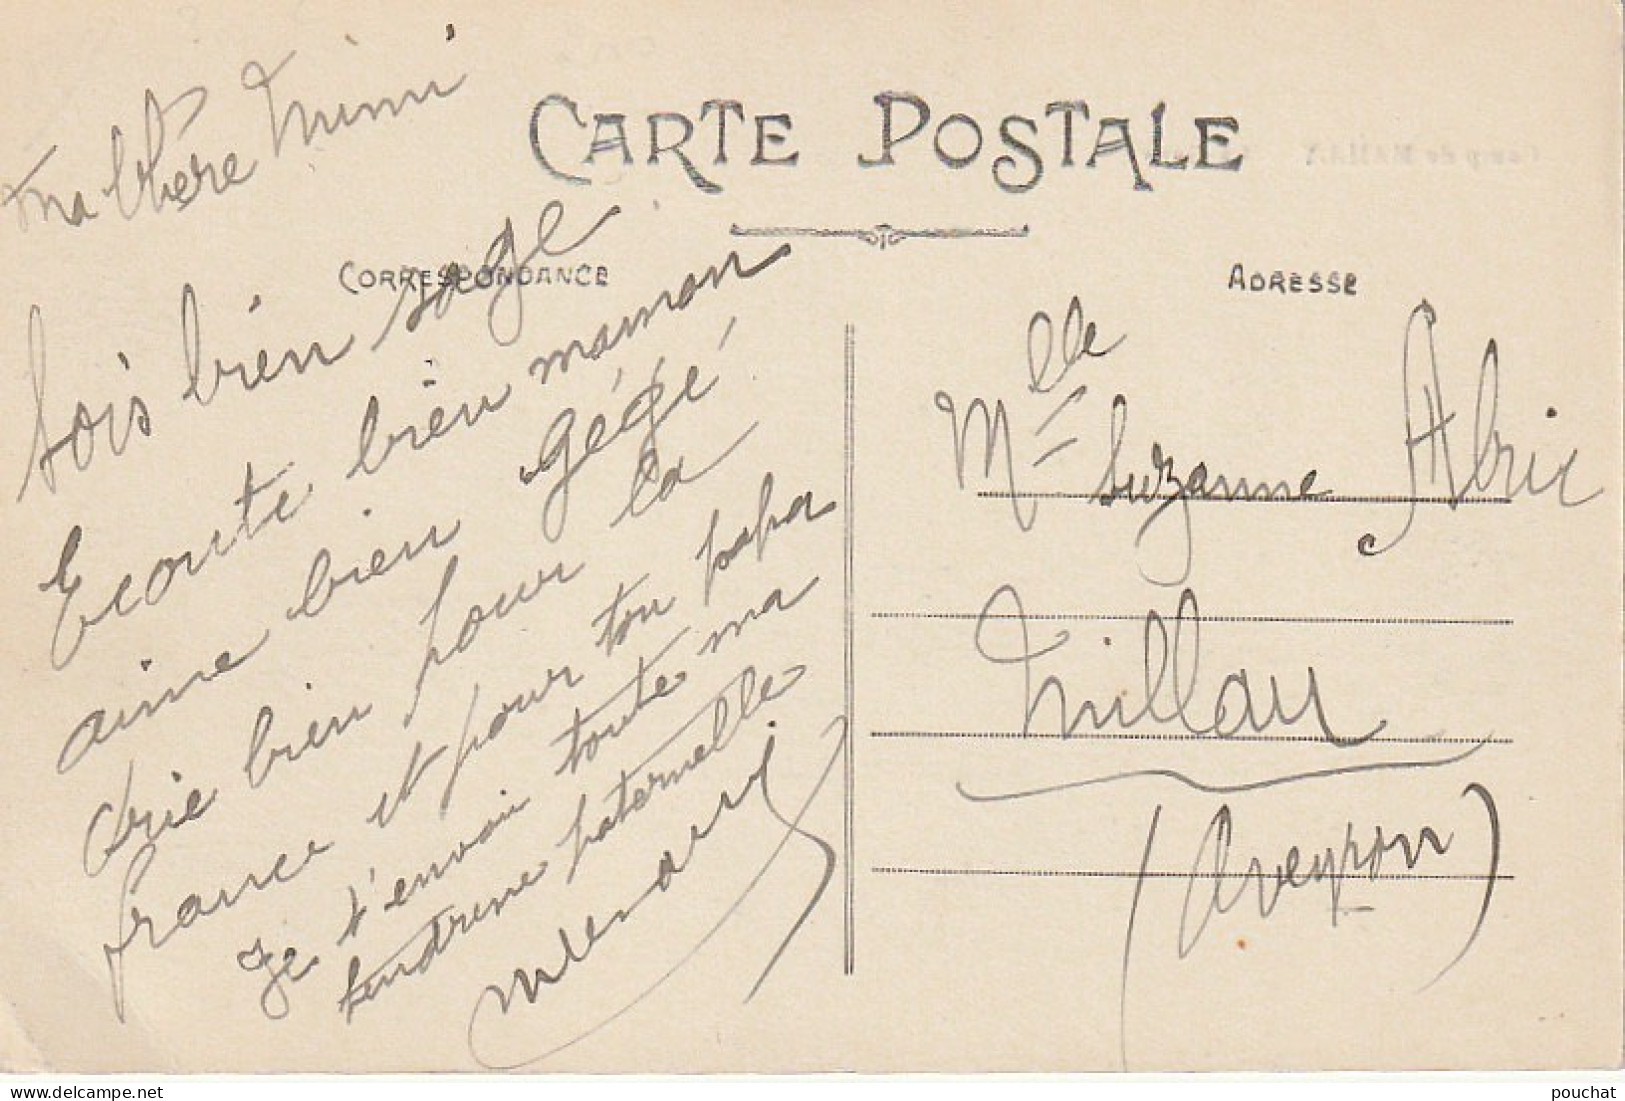 CARTE POSTALE
CORRESPONDANCE
ADRESSE
Ma Chère Mimi
Sois bien sage
Ecoute bien maman
aime bien gégé
prie bien pour la
france et pour ton papa
Je t'envoie toute ma
tendresse paternelle
Mlle Suzanne Abric
Millau
(Aveyron)
Camp de MAILLY
pouchat